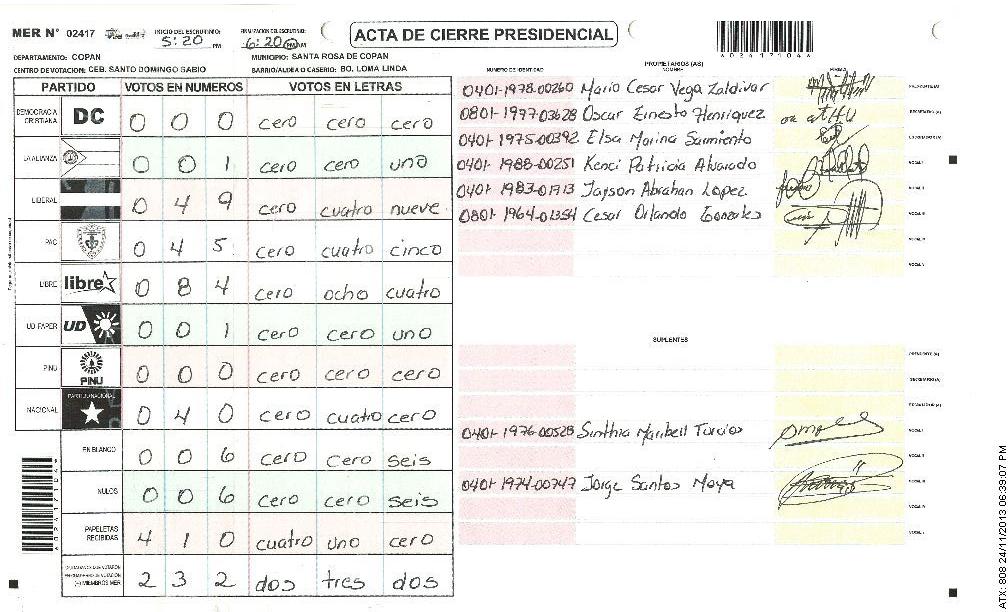 MER N° 02417
INICIO DEL ESCRUTINIO: 5:20 PM
FINALIZACION DEL ESCRUTINIO: 6:20 PM
ACTA DE CIERRE PRESIDENCIAL
DEPARTAMENTO: COPAN
MUNICIPIO: SANTA ROSA DE COPAN
CENTRO DE VOTACION: CEB. SANTO DOMINGO SABIO
BARRIO/ALDEA O CASERIO: BO. LOMA LINDA
PARTIDO VOTOS EN NUMEROS VOTOS EN LETRAS
DEMOCRACIA CRISTIANA DC 0 0 0 cero cero cero
LA ALIANZA 0 0 1 cero cero uno
LIBERAL 0 4 9 cero cuatro nueve
PAC 0 4 5 cero cuatro cinco
LIBRE libre 0 8 4 cero ocho cuatro
UD FAPER UD 0 0 1 cero cero uno
PINU PINU 0 0 0 cero cero cero
NACIONAL PARTIDO NACIONAL 0 4 0 cero cuatro cero
EN BLANCO 0 0 6 cero cero seis
NULOS 0 0 6 cero cero seis
PAPELETAS RECIBIDAS 4 1 0 cuatro uno cero
(+) MIEMBROS MER 2 3 2 dos tres dos
PROPIETARIOS (AS)
NUMERO DE IDENTIDAD NOMBRE FIRMA
0401-1978-00260 Mario Cesar Vega Zaldivar
0801-1977-03628 Oscar Ernesto Henriquez
0401-1975-00392 Elsa Marina Sarmiento
0401-1988-00251 Kenci Patricia Alvarado
0401-1983-01713 Jayson Abrahan Lopez
0801-1964-01354 Cesar Orlando Gonzales
SUPLENTES
0401-1976-00528 Sinthia Maribell Turcios
0401-1974-00747 Jorge Santos Moya
ATX: 808 24/11/2013 06:39:07 PM